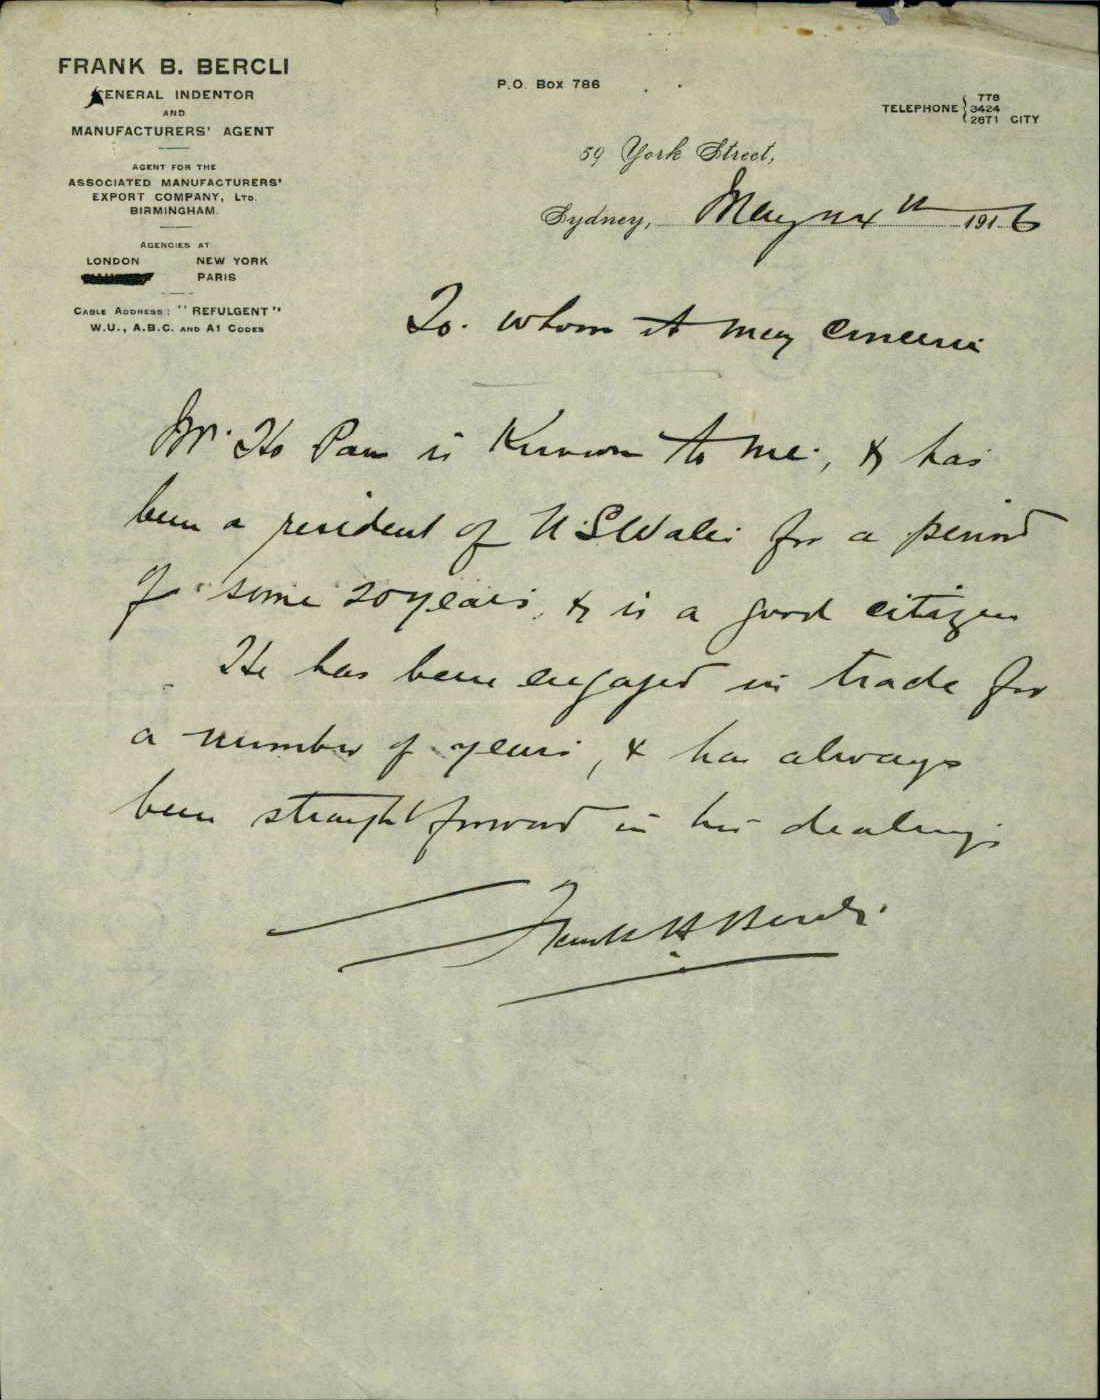 FRANK B. BERCLI
GENERAL INDENTOR
AND
MANUFACTURERS' AGENT
AGENT FOR THE
ASSOCIATED MANUFACTURERS'
EXPORT COMPANY, LTD.
BIRMINGHAM.
AGENCIES AT
LONDON NEW YORK
PARIS
CABLE ADDRESS: "REFULGENT"
W.U., A.B.C. AND A1 CODES
P.O. Box 786
TELEPHONE 778
3424
2671 CITY
59 York Street,
Sydney, May 1916
To. whom it may concern
Mr. Ho Pan is Known to me, & has
been a resident of N.S Wales for a period
of some 20 years, & is a good citizen
He has been engaged in trade for
a number of years, & has always
been straightforward in his dealings
Frank B Bercli